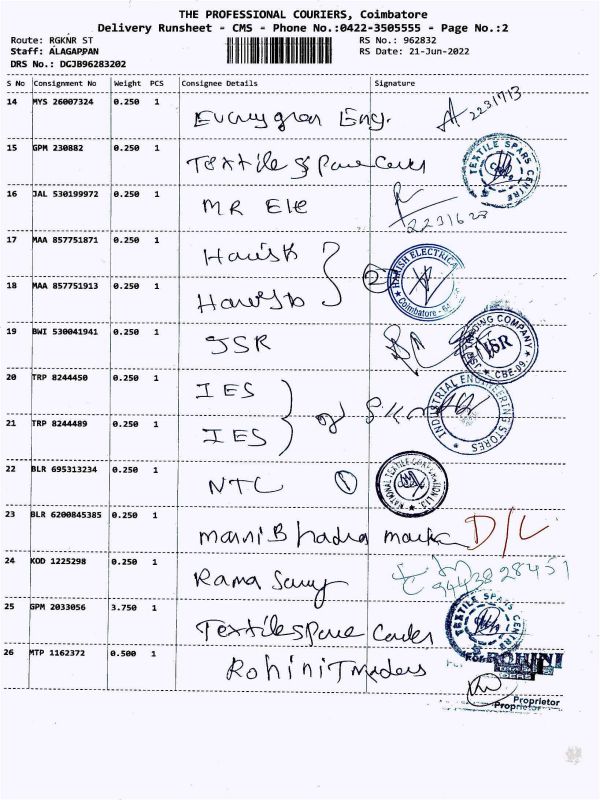 THE PROFESSIONAL COURIERS, Coimbatore
Delivery Runsheet - CMS - Phone No.:0422-3505555 - Page No.:2
Route: RGKNR ST
RS No.: 962832
Staff: ALAGAPPAN
RS Date: 21-Jun-2022
DRS No.: DGJB96283202
S No Consignment No Weight PCS Consignee Details Signature
14 MYS 26007324 0.250 1 Eng. 2231713
15 GPM 230882 0.250 1 Textile Spare TEXTILE SPARS CENTRE
16 JAL 530199972 0.250 1 MR Ele
17 MAA 857751871 0.250 1 Harish
2 HARISH ELECTRICA Coimbatore
18 MAA 857751913 0.250 1 Harish
19 BWI 530041941 0.250 1 JSR JSR TRADING COMPANY CBE-09. JSR
20 TRP 8244450 0.250 1 IES
INDUSTRIAL ENGINEERING STORES
21 TRP 8244489 0.250 1 IES
22 BLR 695313234 0.250 1 NTC 1 NATIONAL TEXTILE CORPORATION
23 BLR 6200845385 0.250 1 manni Bhadra D/L
24 KOD 1225298 0.250 1 Rama Samy 9442828451
25 GPM 2033056 3.750 1 Textile Spare TEXTILE SPARS CENTRE
26 MTP 1162372 0.500 1 Rohini Traders ROHINI
Proprietor
Proprietor